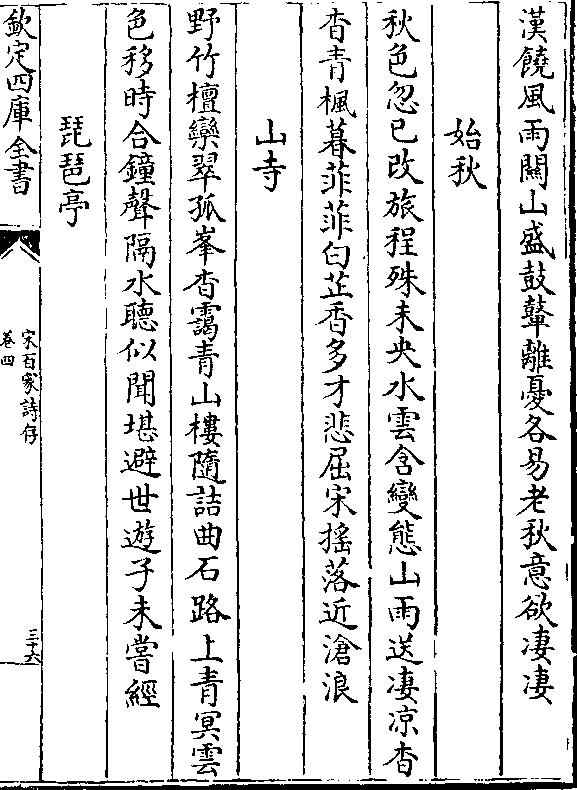 漢饒風雨關山盛鼓鼙離憂各易老秋意欲凄凄
始秋
秋色忽已改旅程殊未央水雲含變態山雨送凄凉杳
杳青楓暮菲菲白芷香多才悲屈宋揺落近滄浪
山寺
野竹檀欒翠孤峯杳靄青山樓隨詰曲石路上青冥雲
色移時合鐘聲隔水聽似聞堪避世遊子未嘗經
琵琶亭
欽定四庫全書
宋百家詩存
卷四
三十六